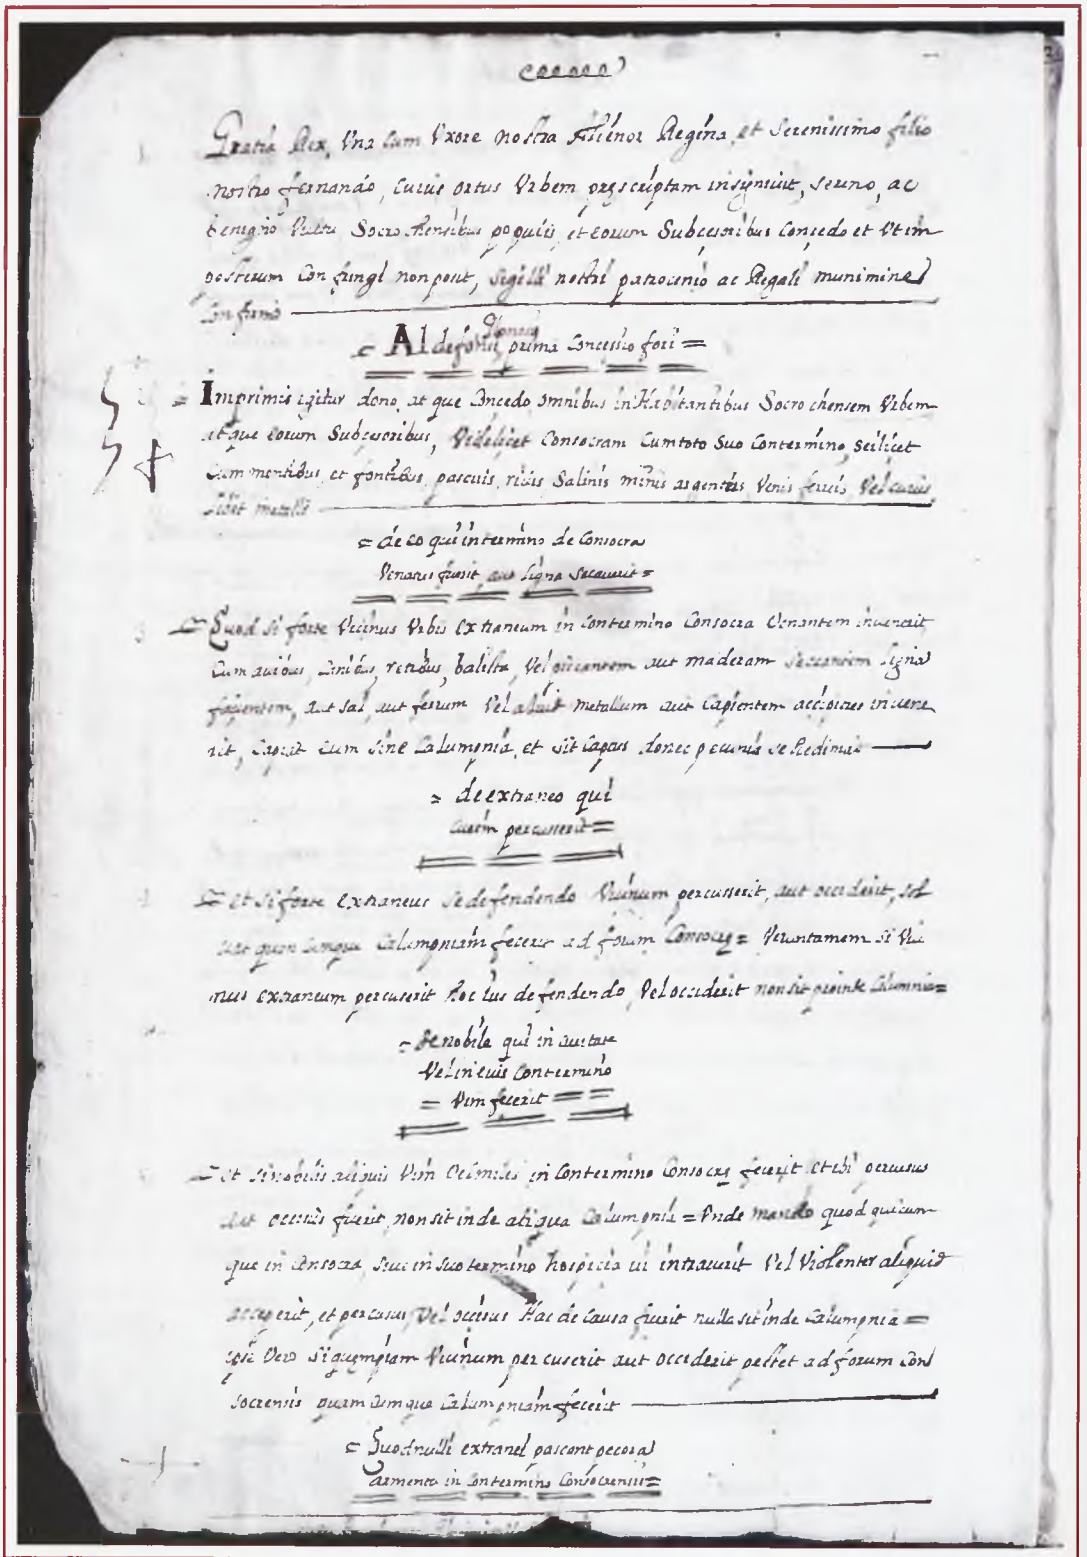 Gratia Rex, Vna Cum Vxore nostra Alienor Regina, et Serenissimo filio
nostro fernando, Cuius ortus Vrbem prescriptam insigniuit, sereno, ac
benigno Vultu Socrochensibus populis, et eorum Subcesoribus Concedo et Vt im
posterum Confungi non posit, sigilli nostri patrocinio ac Regali munimine
Confirmo
= Al de fonsi prima Concessio fori =
= Imprimis igitur dono, at que Concedo omnibus in Habitantibus Socrochensem Vrbem
atque eorum Subcesoribus, Videlicet Consocram Cum toto Suo Contermino, Scilicet
Cum montibus, et fontibus, pascuis, riuis Salinis minis argenteis Venis ferreis, Vel cuius
libet metalli
= de eo qui in termino de Consocra
Venatus fuerit, aut ligna Secauerit =
= Quod si forte Vicinus Vrbis extraneum in Contermino Consocra Venantem inuenerit,
Cum auibus, Canibus, retibus, balista, Vel piscantem aut maderam Seccantem ligna
facientem, aut Sal, aut ferrum Vel aliut metallum aut Capientem accipitres inuene
rit, Capiat eum sine Calumpnia, et sit Captus donec pecunis se Redimat
= de extraneo qui
Vicinum percusserit =
= et si forte extraneus se defendendo Vicinum percusserit, aut occiderit, sol
uat quam Cumque Calumpniam fecerit ad forum Consocre = Veruntamem Si Vici
nus extraneum percuserit Hoc Ius defendendo, Vel occiderit non sit proinde Calumnia =
= de nobile qui in ciuitate
Vel in euis Contermino
= Vim fecerit = =
= et si nobilis aliquis Vim Vel miles in Contermino Consocre fecerit et ibi percusus
aut occisus fuerit, non sit inde aliqua Calumpnia = Vnde mando quod quicum
que in Consocra, siue in suo termino hospicia ui intrauerit Vel Violenter aliquid
acceperit, et percusus, Vel occisus Hac de Causa fuerit nulla sit inde Calumpnia =
ipse Vero si quempiam Vicinum percuserit aut occiderit pectet ad forum Con
socrensis quam Cumque Calumpniam fecerit
= Quod nulli extranei pascant pecora
armenta in Contermino Consocrensis =